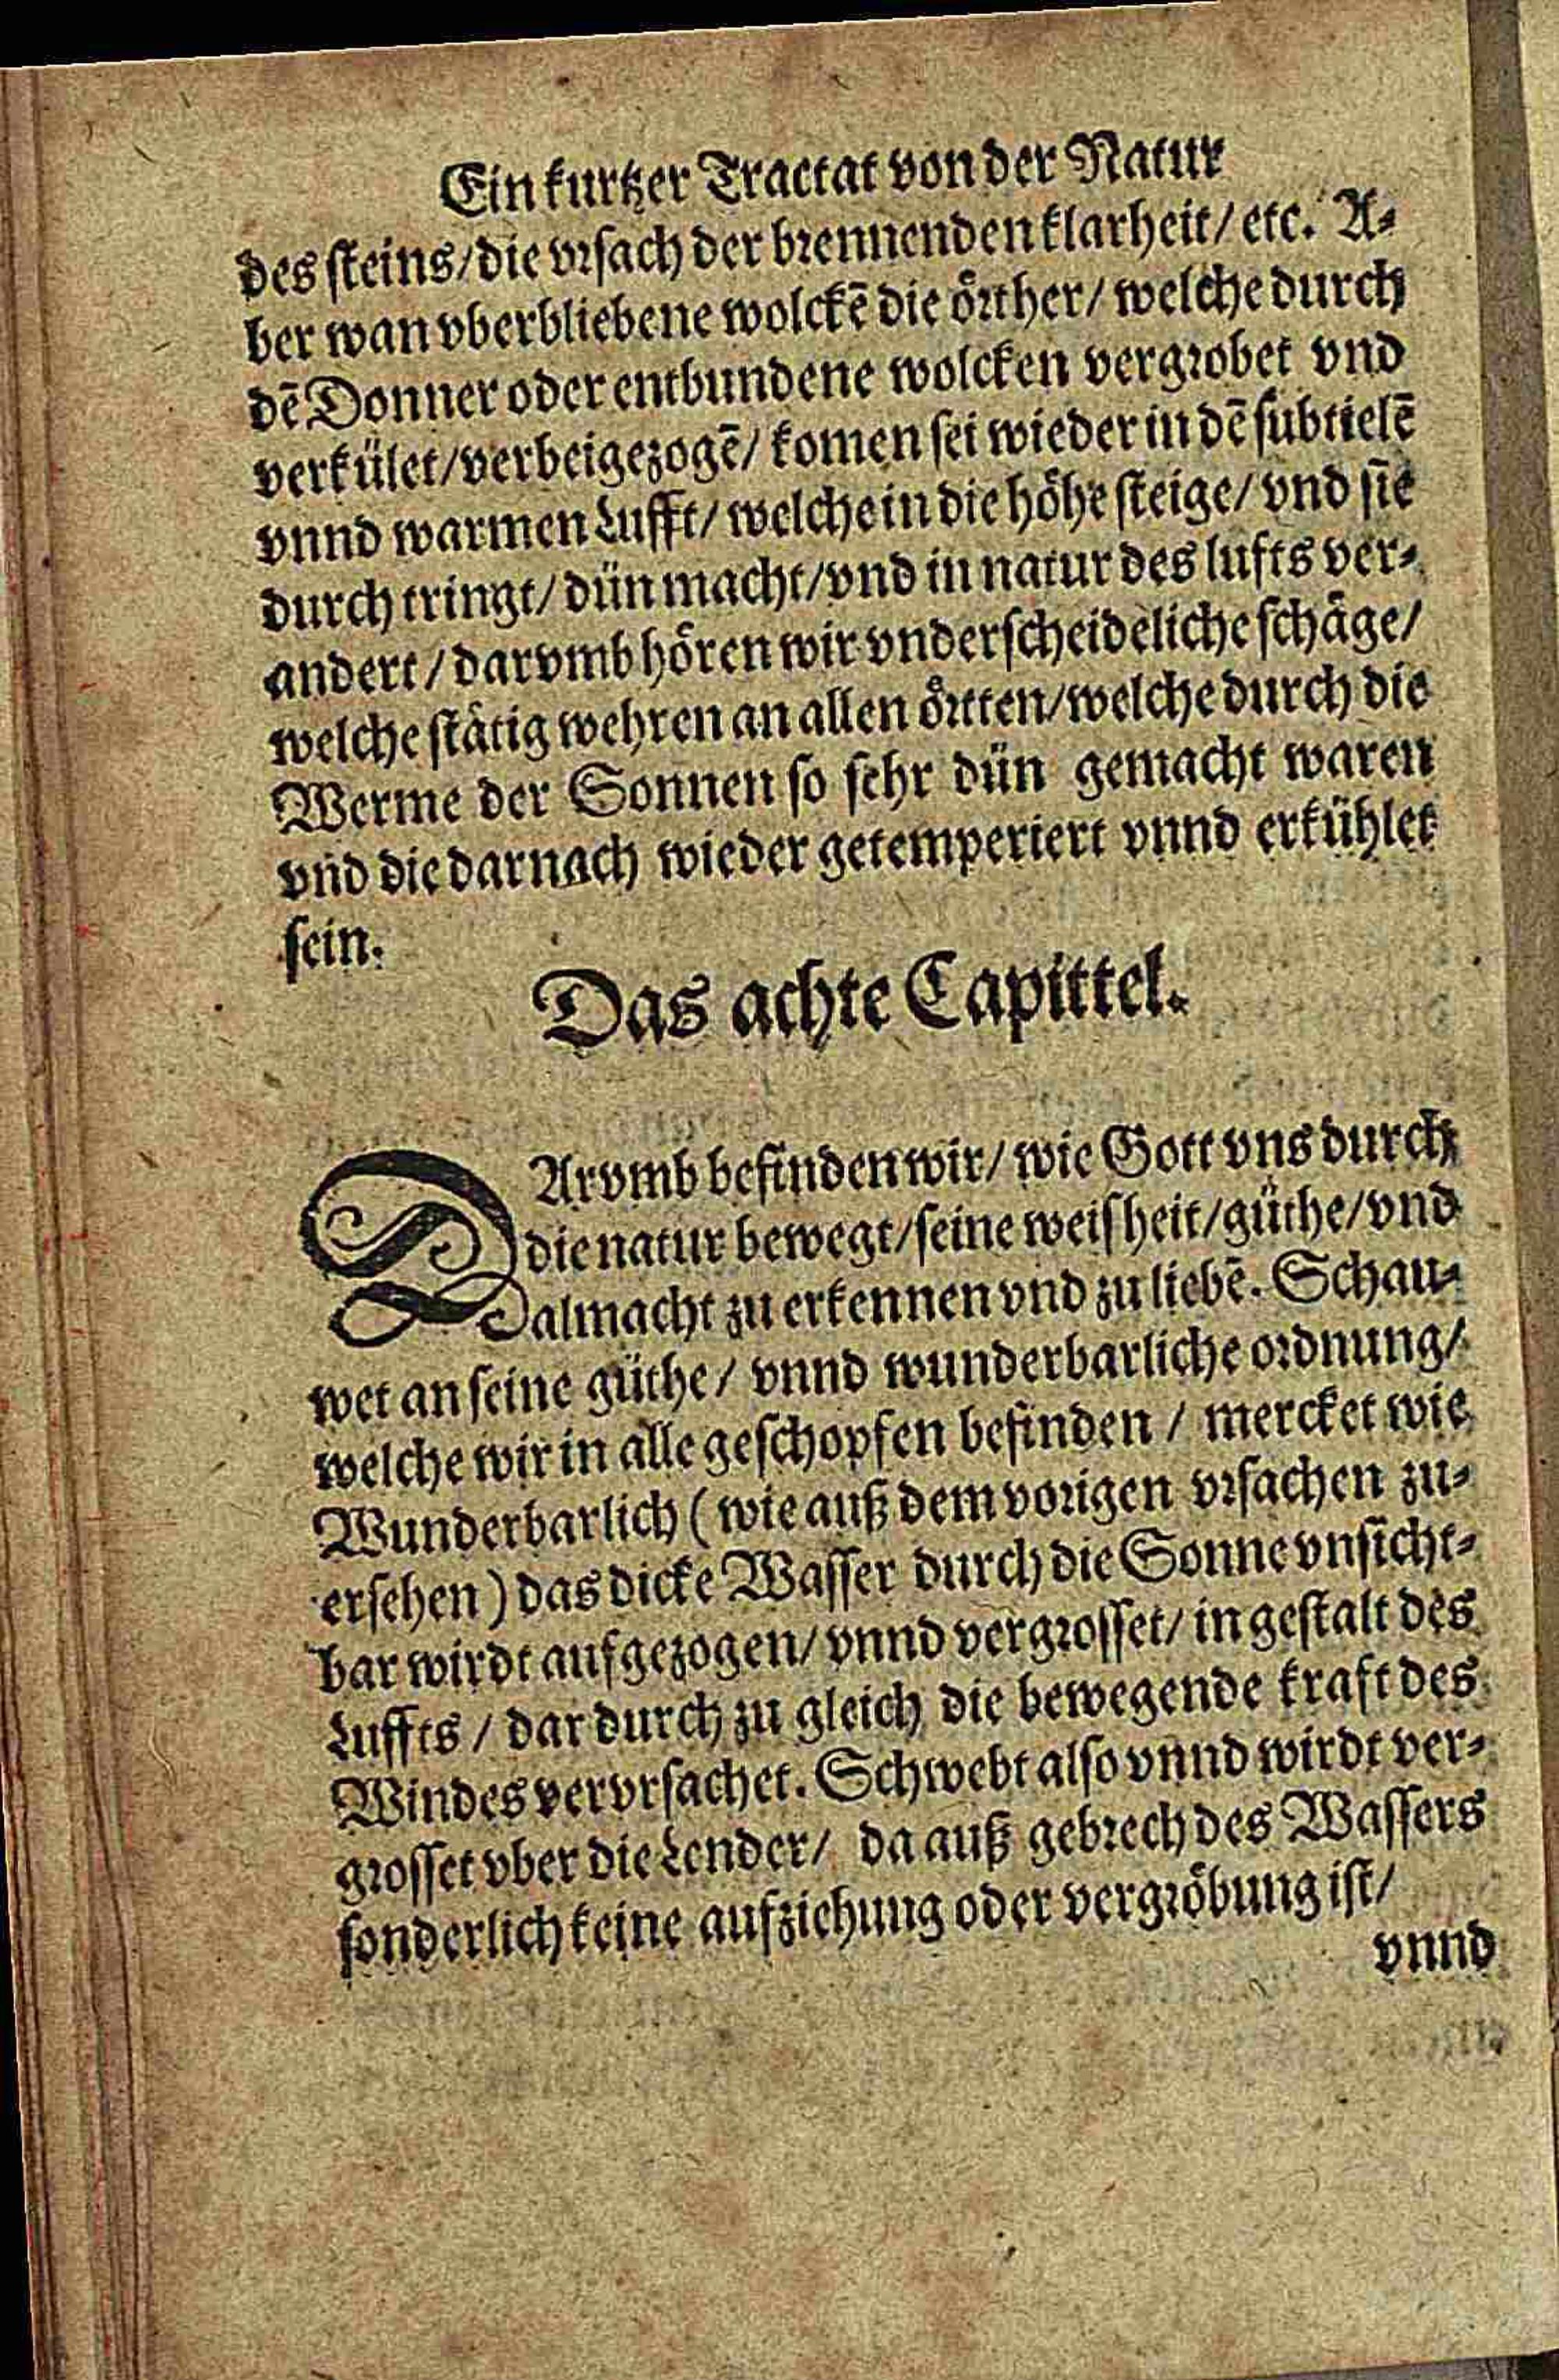 Ein kurtzer Tractat von der Natur
des steins/die vrsach der brennenden klarheit/etc. A-
ber wan vberbliebene wolckē die örther/welche durch
dē Donner oder entbundene wolcken vergrobet vnd
verkület/verbeigezogē/komen sei wieder in dē subtielē
vnnd warmen Lufft/welche in die höhe steige/vnd sie
durch tringt/dün macht/vnd in natur des lufts ver-
andert/darvmb hören wir vnderscheideliche schäge/
welche stätig wehren an allen örtten/welche durch die
Werme der Sonnen so sehr dün gemacht waren
vnd die darnach wieder getemperiert vnnd erkühlet
sein.
Das achte Capittel.
DArvmb befinden wir/wie Gott vns durch
die natur bewegt/seine weisheit/güthe/vnd
almacht zu erkennen vnd zu liebē. Schau-
wet an seine güthe/vnnd wunderbarliche ordnung/
welche wir in alle geschopfen befinden/mercket wie
Wunderbarlich (wie auß dem vorigen vrsachen zu-
ersehen) das dicke Wasser durch die Sonne vnsicht-
bar wirdt aufgezogen/vnnd vergrosset/in gestalt des
Luffts/dar durch zu gleich die bewegende kraft des
Windes vervrsachet. Schwebt also vnnd wirdt ver-
grosset vber die Lender/da auß gebrech des Wassers
sonderlich keine aufziehung oder vergröbung ist/
vnnd